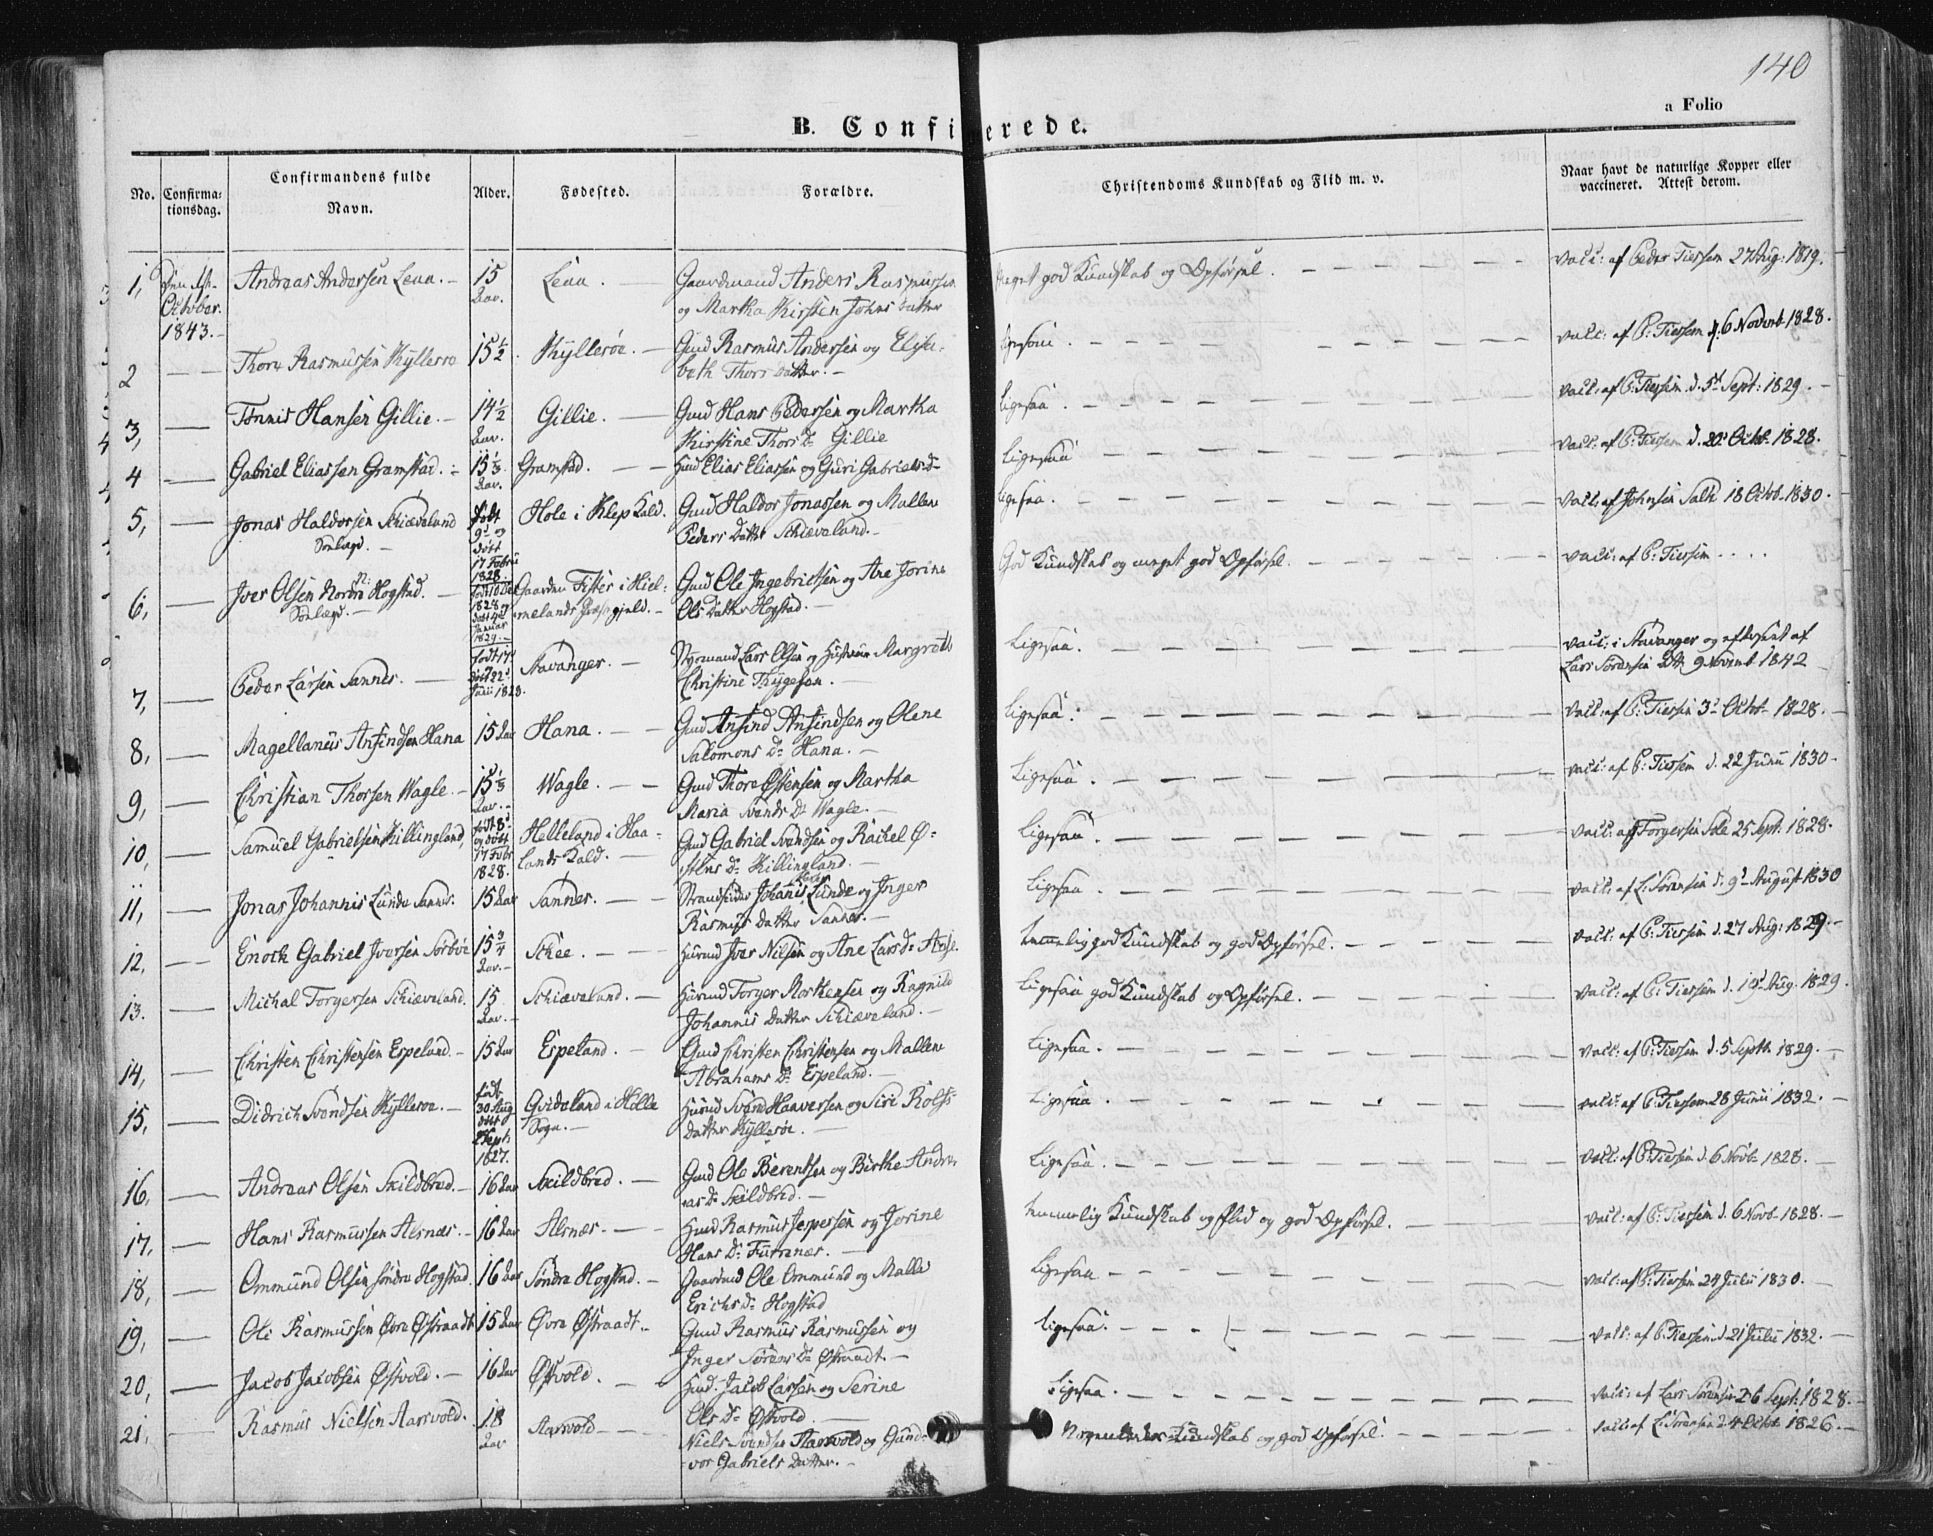 140
a Folio
B. Confirmerede.
No. Confirmationsdag. Confirmandens fulde Navn. Alder. Fødested. Forældre. Christendoms Kundskab og Flid m. v. Naar havt de naturlige Kopper eller vaccineret. Attest derom.
1, October 1843. Andreas Andersen Leua. 15 Aar. Leua. Gaardmand Anders Rasmussen og Martha Kirsten Johns datter Meget god Kundskab og Opførsel. vacc: af Peder Tiessem 27 Aug: 1819.
2 Thore Rasmussen Kyllesøe 15½ Kyllesøe. Gmd Rasmus Andersen og Elisabeth Thors datter. ligesaa. vacc: af P: Tiessem d. 6 Novemb 1828.
3, Tønnis Hansen Gillie. 14½ Aar. Gillie. Gmd Hans Pedersen og Martha Kirstine Thors Dr Gillie ligesaa. vacc: af P: Tiessem d. 5t Sept: 1829.
4 Gabriel Eliassen Gramstad. 15⅓ Aar. Gramstad. Hmd Elias Eliassen og Guri Gabriels Dr Ligesaa vacc: af P: Tiessem d. 20 Octb. 1828.
5, Jonas Haldorsen Schiæveland Sønlægd. født 9d og døbt 17 Febru 1828. Hole i Klep Kald. Gmd Haldor Jonassen og Mallene Peders Datter Schiæveland. ligesaa. vacc: af Johnsen 18 Octb. 1830.
6, Iver Olsen Nordre Hogstad. Sønlægd. født 10 Dec 1828 og døbt 4d Januar 1829. Gaarden Fister i Hielmelands Præstegjeld. Gmd Ole Ingebrietsen og Ane Jorine Ols Datter Hogstad. God Kundskab og meget god Opførsel. vacc: af P: Tiessem . . . .
7, Peder Larsen Sannes. født døbt 22 Juni 1828. Stavanger. Styrmand Lars Olsen og Hustrue Margrethe Christine Thygesen. Ligesaa. vacc: i Stavanger og eftersynt af Lars Sørensen 9 Novemb 1842
8, Magellanus Ansindsen Hana 15 Aar Hana. Gmd Ansind Ansindsen og Olene Salomons Dr Hana. Ligesaa. vacc: af P: Tiessem 3d Octb. 1828.
9, Christian Thorsen Wagle. 15⅓ Aar. Wagle. Gmd Thore Østensen og Martha Maria Svends Dr Wagle. Ligesaa. vacc: af P: Tiessem d. 22 Junii 1830.
10, Samuel Gabrielsen Killingland født 8d og døbt 17 Febr 1828. Helleland i Haalands Kald. Gmd Gabriel Svendsen og Rachel Østens Dr Killingland. Ligesaa. vacc: af Torgersen Sole 25 Sept: 1828.
11, Jonas Johannis Lunde Sannes. 15 Aar Sannes. Strandsidder Johanis Lunde og Inger Rasmus Datter Sandes. Ligesaa. vacc. af L: Sørensen d: 9d August 1830
12, Enock Gabriel Iversen Sørbøe 15¾ Aar. Schee. Huusmd Iver Nilsen og Ane Lars Dr temmelig god Kundskab og god Opførsel. vacc. af P: Tiessem d. 27 Aug: 1829.
13. Michal Torgersen Schiæveland. 15 Aar. Schiæveland. Huusmd Torger Morthensen og Ragnild Johannis Datter Schiæveland. Ligesaa god Kundskab og Opførsel. vacc: af P: Tiessem d. 19 Aug. 1829.
14, Christen Christensen Espeland. 15 Aar Espeland. Gmd Christen Christensen og Mallene Abrahams Dr Espeland. Ligesaa. vacc: af P: Tiessem d. 5 Septb 1829.
15, Didrich Svendsen Kyllesøe. født 30 Aug døbt 2 Sept. 1827. Gvideland i Hølle Sogn. Huusmd Svend Haaversen og Siri Rolfs Datter Kyllesøe. Ligesaa. vacc: af P: Tiessem 28 Junii 1832.
16, Andreas Olsen Skildbred. 16 Aar Skildbred. Gmd Ole Berentsen og Birthe Andreas Dr Skildbred. Ligesaa. vacc: af P: Tiessem d. 6 Novb 1828.
17, Hans Rasmussen Alsnæs. 16 Aar Alsnæs. Huusmd Rasmus Jespersen og Jorine Hans Dr Furrenæs. temmelig Kundskab og Flid og god Opførsel. vacc: af P: Tiessem d. 6 Novb 1828.
18, Ommund Olsen Søndre Hogstad. 16 Aar Søndre Hogstad. Gaardmd Ole Ommund og Malle Erichs Dr Hogstad Ligesaa vacc: af P: Tiessem 24 Julii 1830.
19, Ole Rasmussen Øvre Østraadt 15 Aar Øvre Østraadt. Gmd Rasmus Rasmussen og Inger Sørens Dr Østraadt. ligesaa. vacc: af P: Tiessem d. 21 Julii 1832.
20, Jacob Jacobsen Østvold. 16 Aar Østvold. Huusmd. Jacob Larsen og Serine Ols Dr Østvold. Ligesaa. vacc: af Lars Sørensen 26 Sept: 1828.
21, Rasmus Nielsen Aarsvold. 18 Aar Aarsvold Niels Svendsen Aarsvold og Gundvor Gabriels Datter. Kundskab og god Opførsel. vacc: af L: Sørensen d. 4 Octb. 1826.